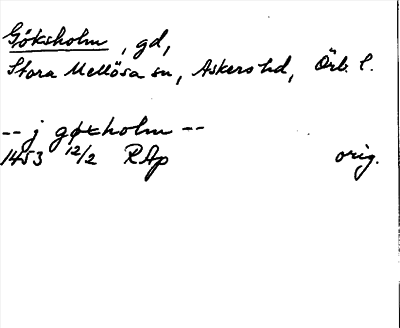 Göksholm, gd,
Stora Mellösa sn, Askers hd, Örb. l.
-- j gøxholm --
1453 12/2 RAp orig.